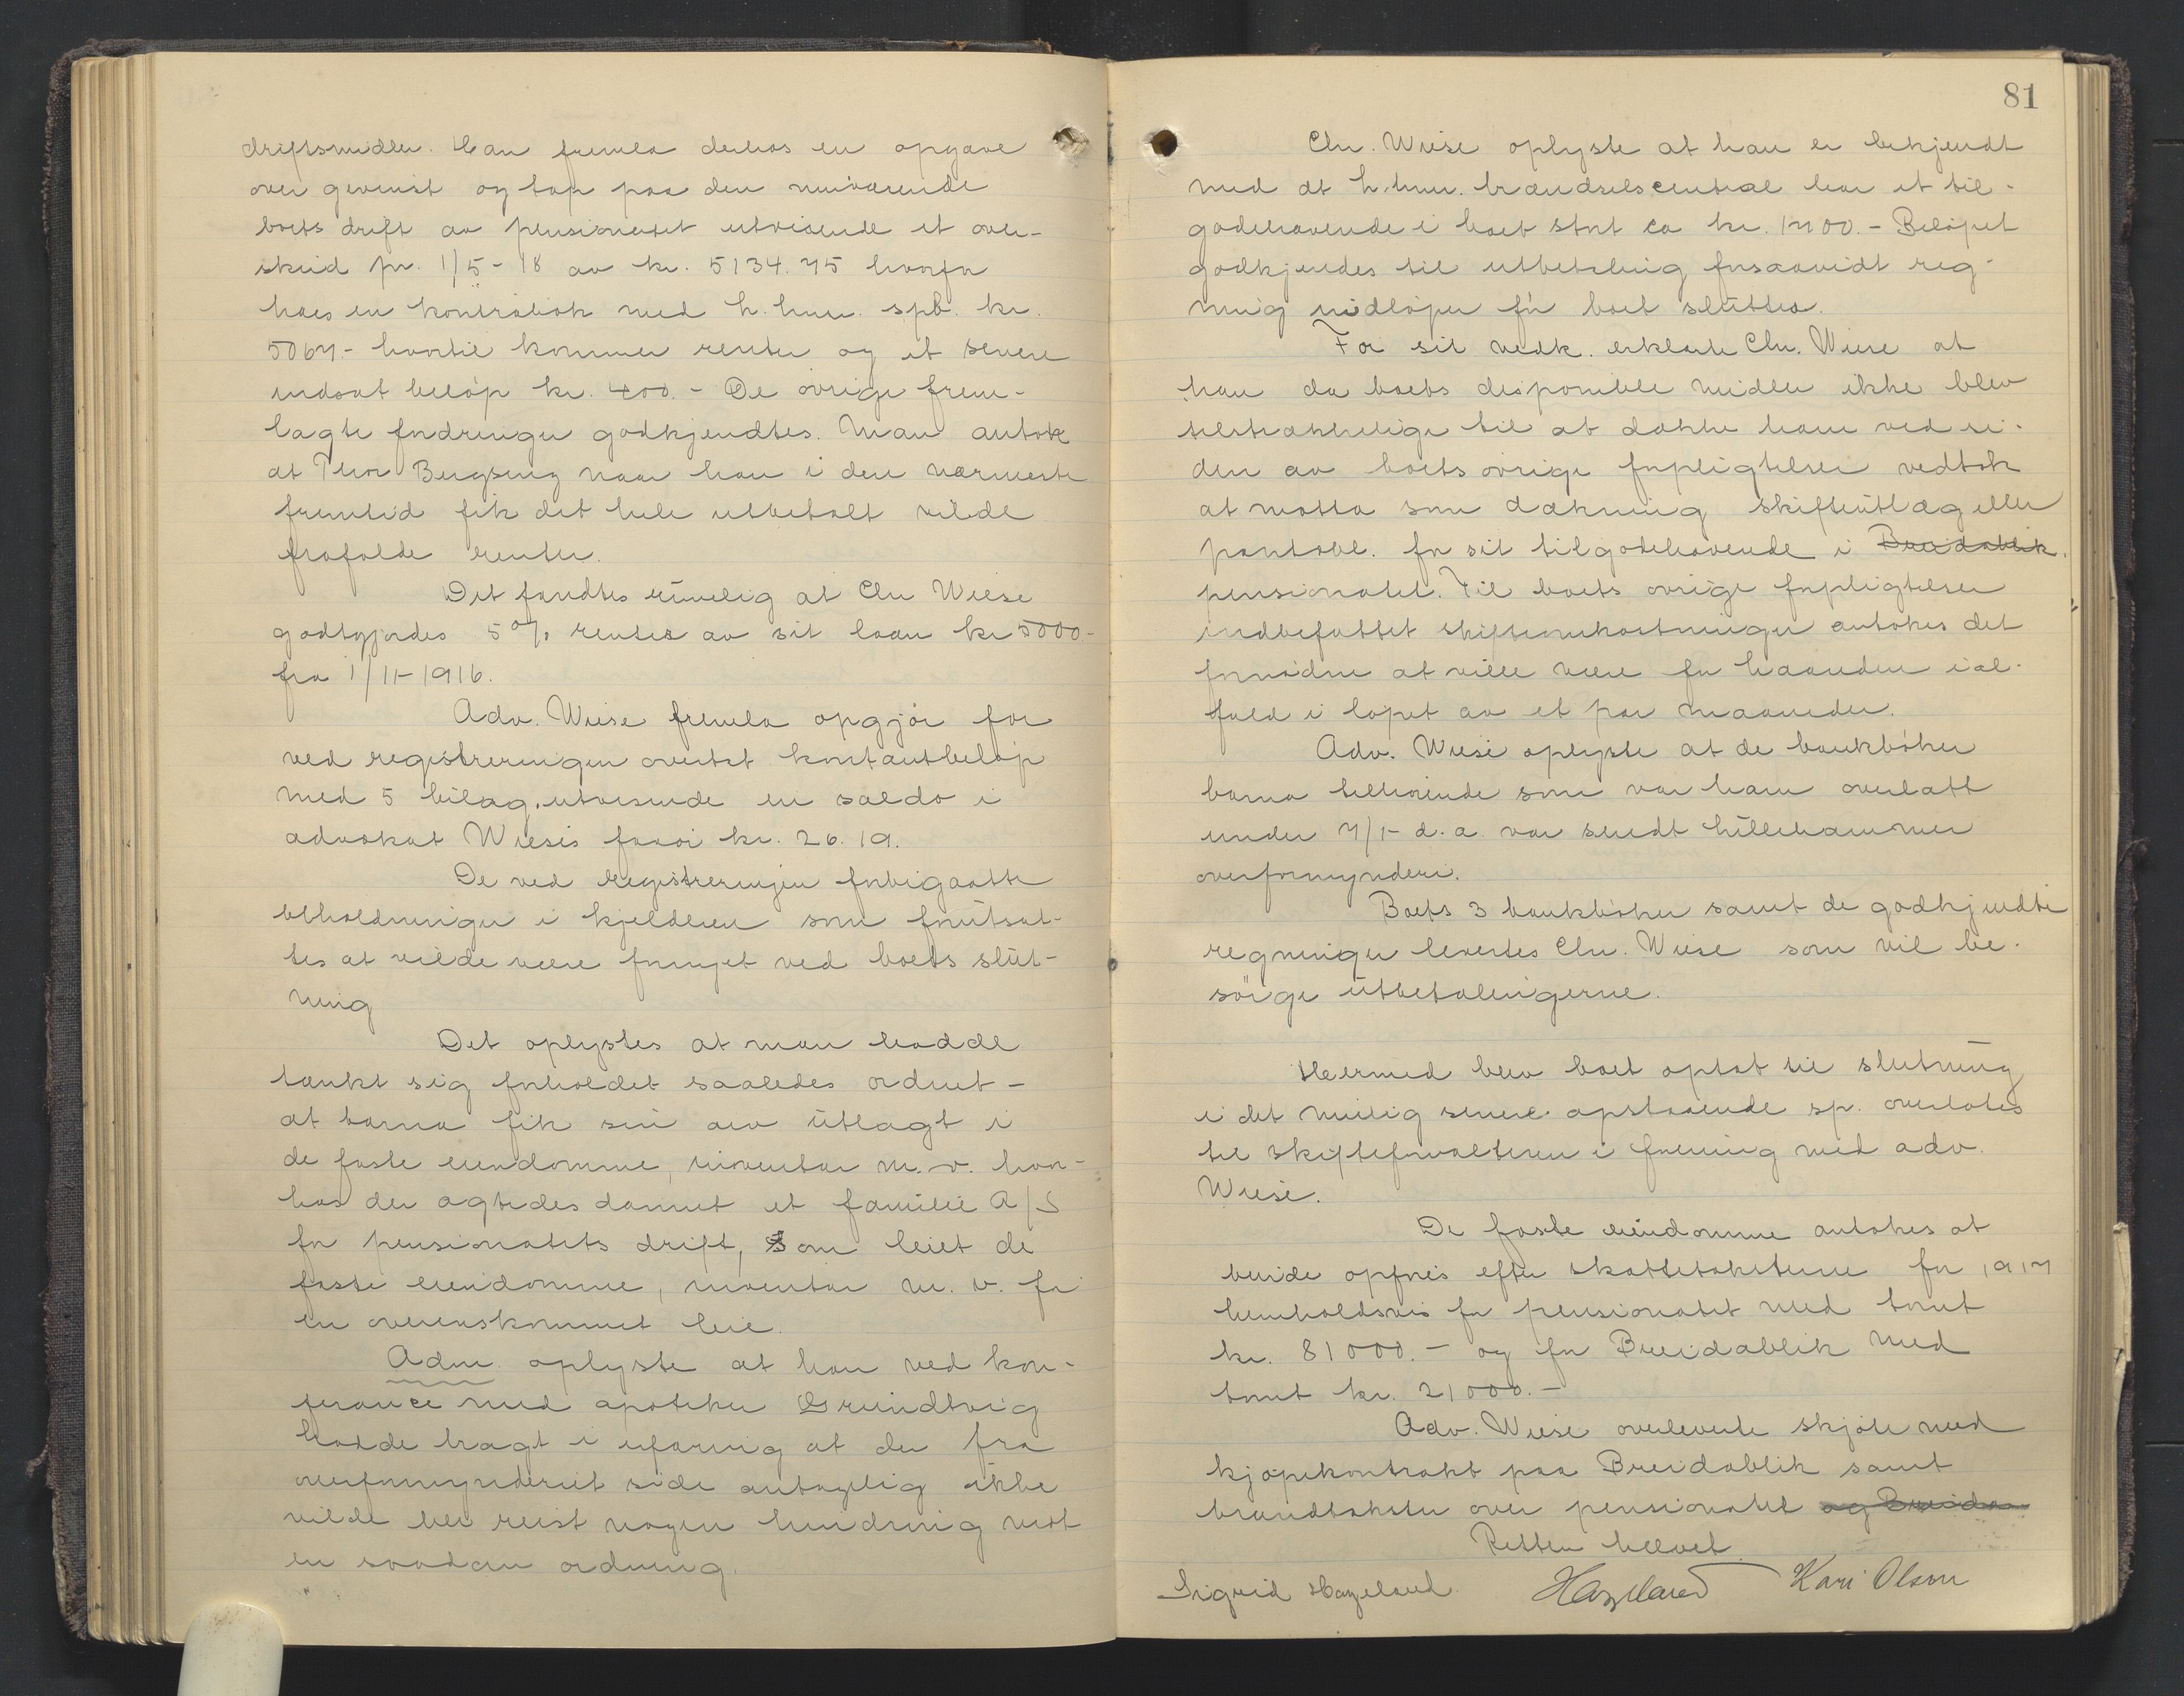 driftsmidler. Han fremla derhos en opgave
over gevinst og tap paa den nuværende
boets drift av pensionatet utvisende et over-
skud pr. 1/5 - 18 av kr. 5134.75 hvorfor
haes en kontrabok med L.hmr. spb. kr.
5067.- hvortil kommer renter og et senere
indsat beløp kr. 400.- De øvrige frem-
lagte fordringer godkjendtes. Man antok
at Thor Bergseng naar han i den nærmeste
fremtid fik det hele utbetalt vilde
frafalde renter.
Det fandtes rimelig at Chr Wiese
godtgjordes 5 % renter av sit laan kr 5000-
fra 1/11-1916.
Adv. Wiese fremla opgjør for
ved registreringen overtat kontantbeløp
med 5 bilag, utvisende en saldo i
advokat Wieses favør kr. 26.19.
De ved registreringen forbigaatte
beholdninger i kjelderen som forutsat-
tes at vilde være fornyet ved boets slut-
ning
Det oplystes at man hadde
tænkt sig forholdet saaledes ordnet -
at barna fik sin arv utlagt i
de faste eiendomme, inventar m.v. hvor-
hos der agtedes dannet et familie A/S
for pensionatets drift, som leiet de
faste eiendomme, inventar m.v. for
en overenskommet leie.
Adm. oplyste at han ved kon-
ferance med apoteker Grundtvig
hadde bragt i erfaring at der fra
overformynderiet side antagelig ikke
vilde bli reist nogen hindring mot
en saadan ordning.
81
Chr. Wiese oplyste at han er bekjendt
med at L.hmr. brændselscentral har et til-
godehavende i boet stort ca kr. 1700.- Beløpet
godkjendes til utbetaling forsaavidt reg-
ning indløper før boet sluttes.
For sit vedk. erklærte Chr. Wiese at
han da boets disponible midler ikke blev
tilstrækkelige til at dække ham ved si-
den av boets øvrige forpligtelser vedtok
at motta som dækning skifteutlæg eller
pantobl. for sit tilgodehavende i Breidablik.
pensionatet. Til boets øvrige forpligtelser
indbefattet skifteomkostninger antokes det
fornødne at ville være for haanden ial-
fald i løpet av et par maaneder.
Adv. Wiese oplyste at de bankbøker
barna tilhørende som var ham overlatt
under 7/1- d.a. var sendt Lillehammer
overformynderi.
Boets 3 bankbøker samt de godkjendte
regninger levertes Chr. Wiese som vil be-
sørge utbetalingerne.
Hermed blev boet optat til slutning
i det mulig senere opstaaende sp. overlates
til skifteforvalteren i forening med adv.
Wiese.
De faste eiendomme antokes at
burde opføres efter skattetaksterne for 1917
henholdsvis for pensionatet med tomt
kr. 81000.- og for Breidablik med
tomt kr. 21000.-
Adv. Wiese overleverte skjøte med
kjøpekontrakt paa Breidablik samt
brandtakster over pensionatet og Breida
Retten hævet.
Sigrid Hazeland. Hazeland Kari Olsen